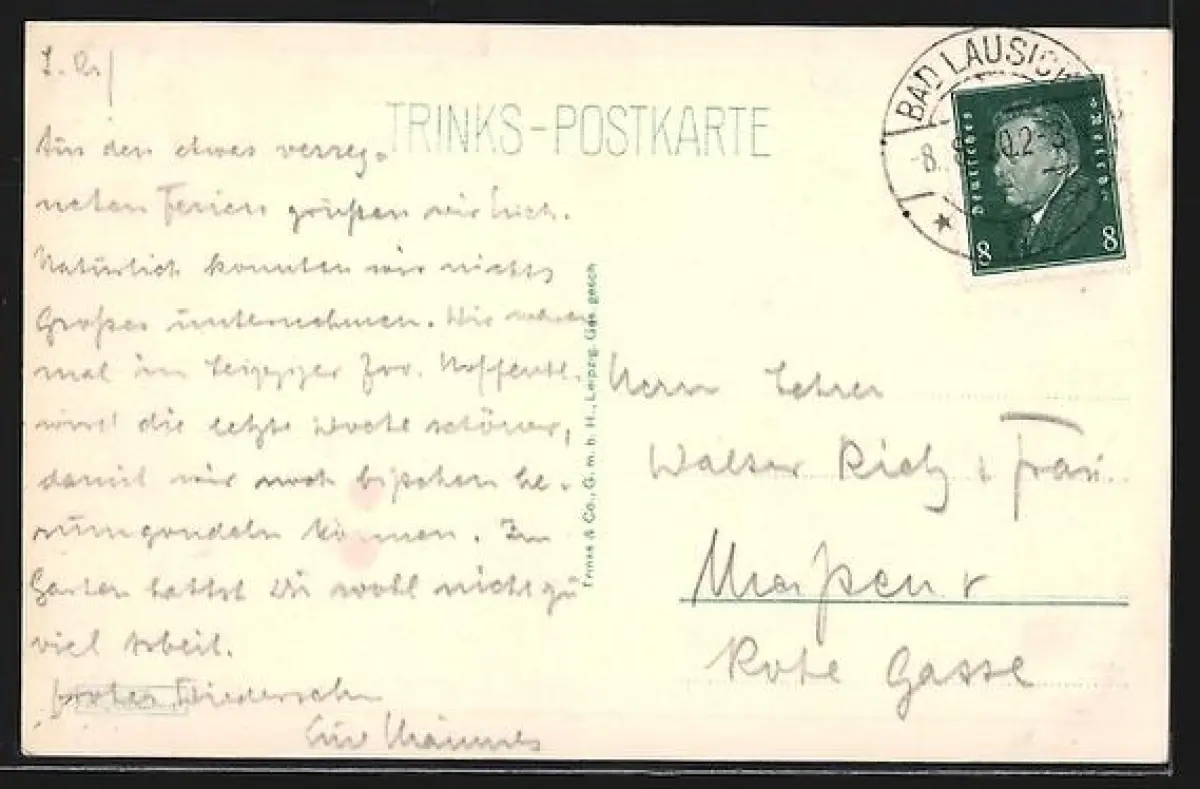 TRINKS-POSTKARTE
BAD LAUSICK
-8. 8. 20.2-3
Deutsches Reich
8 8
Trinks & Co., G.m.b.H., Leipzig. Ges. gesch.
Aus den etwas verreg-
neten Ferien grüßen wir Euch.
Natürlich konnten wir nichts
Großes unternehmen. Wir waren
mal im Leipziger Zoo. Hoffentl.
wird die letzte Woche schöner,
damit wir noch bißchen he-
rumgondeln können. Im
Garten hattet Ihr wohl nicht zu
viel Arbeit.
Frohes Wiedersehn
Eure
Herrn Lehrer
Walter u. Frau
Rote Gasse